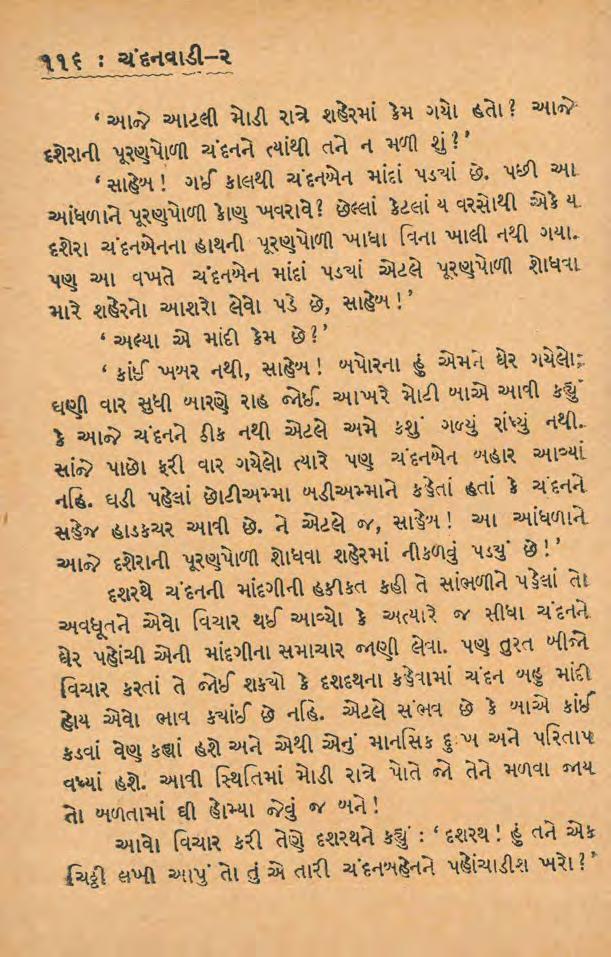 ૧૧૬ : ચંદનવાડી-૨
‘ આજે આટલી મોડી રાત્રે શહેરમાં કેમ ગયો હતો? આજે
દશેરાની પૂરણપોળી ચંદનને ત્યાંથી તને ન મળી શું?’
‘ સાહેબ! ગઈ કાલથી ચંદનબેન માંદાં પડયાં છે. પછી આ
આંધળાને પૂરણપોળી કોણ ખવરાવે? છેલ્લાં કેટલાં ય વરસોથી એકે ય
દશેરા ચંદનબેનના હાથની પૂરણપોળી ખાધા વિના ખાલી નથી ગયા.
પણ આ વખતે ચંદનબેન માંદાં પડયાં એટલે પૂરણપોળી શોધવા
મારે શહેરનો આશરો લેવો પડે છે, સાહેબ!’
‘ અલ્યા એ માંદી કેમ છે?’
‘ કાંઈ ખબર નથી, સાહેબ! બપોરના હું એમને ઘેર ગયેલો;
ઘણી વાર સુધી બારણે રાહ જોઈ. આખરે મોટી બાએ આવી કહ્યું
કે આજે ચંદનને ઠીક નથી એટલે અમે કશું ગળ્યું રાંધ્યું નથી.
સાંજે પાછો ફરી વાર ગયેલો ત્યારે પણ ચંદનબેન બહાર આવ્યાં
નહિ. ઘડી પહેલાં છોટીઅમ્મા બડીઅમ્માને કહેતાં હતાં કે ચંદનને
સહેજ હાડકચર આવી છે. ને એટલે જ, સાહેબ! આ આંધળાને
આજે દશેરાની પૂરણપોળી શોધવા શહેરમાં નીકળવું પડયું છે!’
દશરથે ચંદનની માંદગીની હકીકત કહી તે સાંભળીને પહેલાં તો
અવધૂતને એવો વિચાર થઈ આવ્યો કે અત્યારે જ સીધા ચંદનને
ઘેર પહોંચી એની માંદગીના સમાચાર જાણી લેવા. પણ તુરત બીજો
વિચાર કરતાં તે જોઈ શકયો કે દશદથના કહેવામાં ચંદન બહુ માંદી
હોય એવો ભાવ કયાંઈ છે નહિ. એટલે સંભવ છે કે બાએ કાંઈ
કડવાં વેણ કહ્યાં હશે અને એથી એનું માનસિક દુઃખ અને પરિતાપ
વધ્યાં હશે. આવી સ્થિતિમાં મોડી રાત્રે પોતે જો તેને મળવા જાય
તો બળતામાં ઘી હોમ્યા જેવું જ બને!
આવો વિચાર કરી તેણે દશરથને કહ્યું : ‘ દશરથ! હું તને એક
ચિઠ્ઠી લખી આપું તો તું એ તારી ચંદનબહેનને પહોંચાડીશ ખરો?’